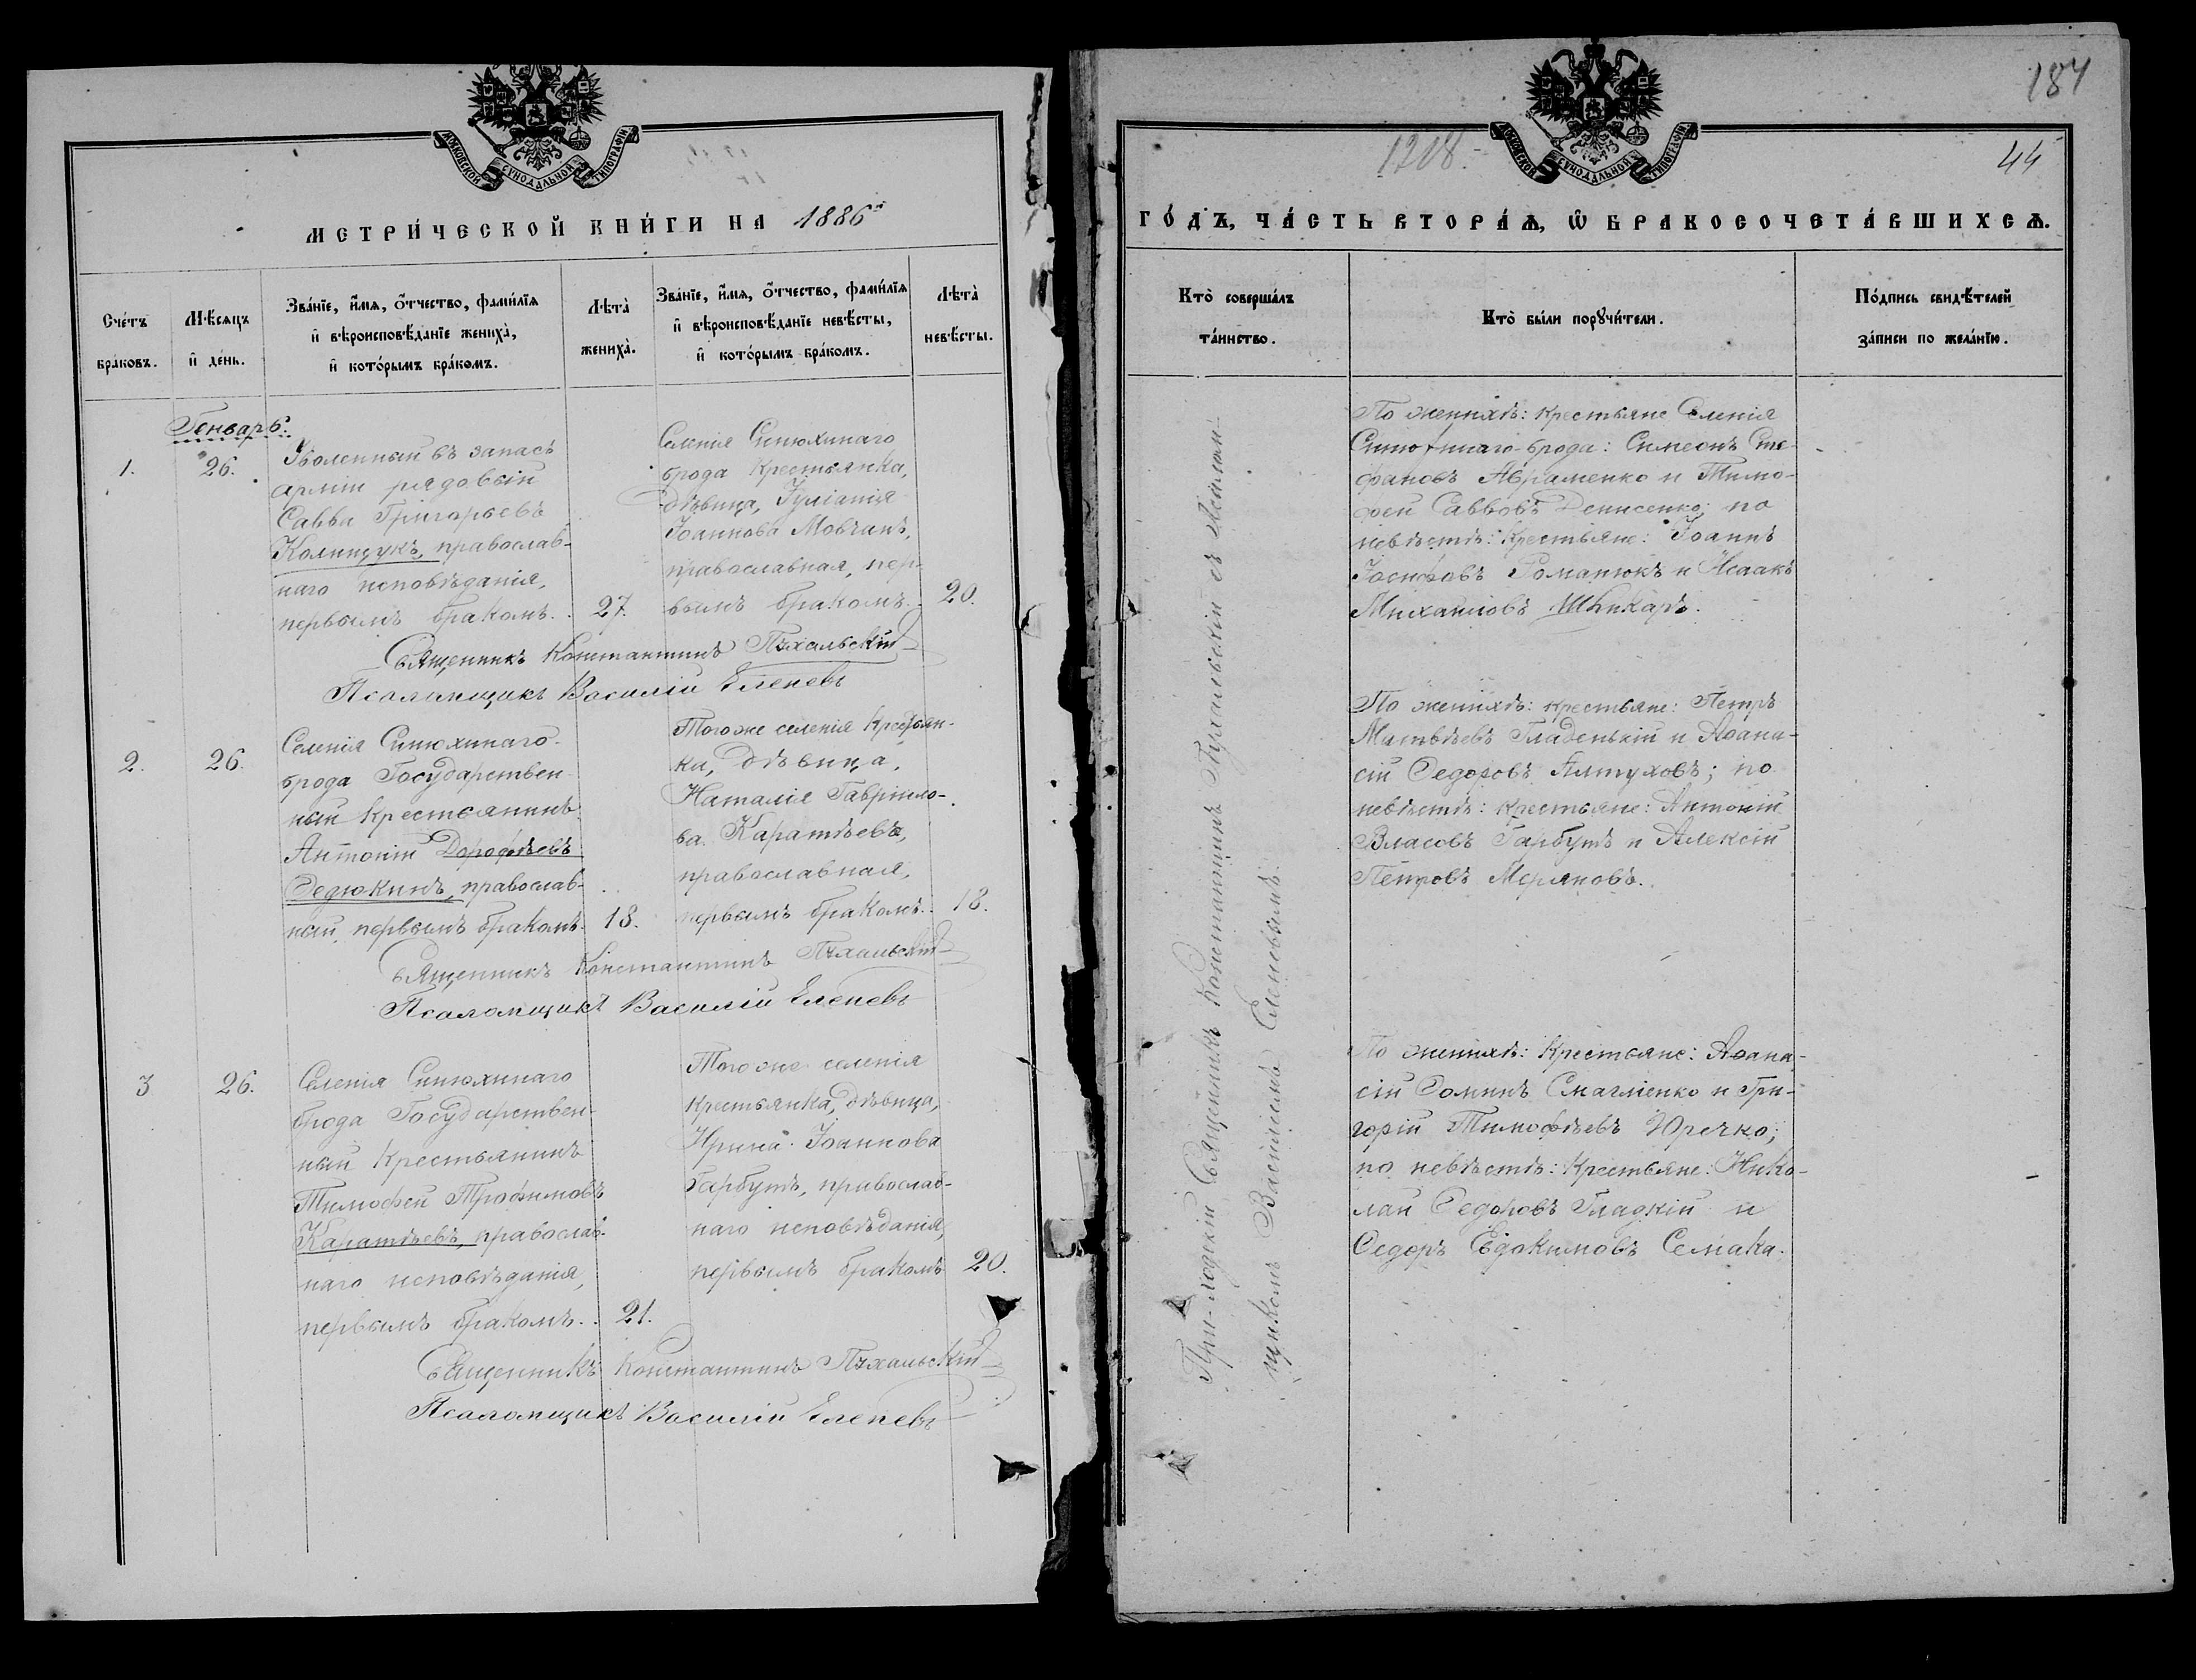 МОСКОВСКОЙ СѴНОДАЛЬНОЙ ТИПОГРАФІИ
МЕТРИ́ЧЕСКОЙ КНИ́ГИ НА 1886й
Сче́тъ бра́ковъ.
Мѣ́сяцъ и҆ де́нь.
Зва́нїе, и҆́мя, ѻ҆́тчество, фами́лїя
и҆ вѣроисповѣ́данїе жениха̀,
и҆ кото́рымъ бра́комъ.
Лѣта̀ жениха̀.
Зва́нїе, и҆́мя, ѻ҆́тчество, фами́лїя
и҆ вѣроисповѣ́данїе невѣ́сты,
и҆ кото́рымъ бра́комъ.
Лѣта̀ невѣ́сты.
Генварь.
1.
26.
Уволенный въ запасъ
арміи рядовый
Савва Григорьевъ
Колищукъ, православ-
наго исповѣданія,
первымъ бракомъ.
27.
Селенія Синюхинаго
брода крестьянка,
дѣвица, Іуліанія
Іоаннова Мовчанъ,
православная, пер-
вымъ бракомъ.
20.
Священникъ Константинъ Пухальскій
Псаломщикъ Василій Еленевъ
2.
26.
Селенія Синюхинаго-
брода Государствен-
ный крестьянинъ
Антоній Дорофѣевъ
Федюкинъ, православ-
ный, первымъ бракомъ.
18.
Тогоже селенія крестьян-
ка, дѣвица,
Наталія Гаврило-
ва Каратѣева,
православная,
первымъ бракомъ.
18.
Священникъ Константинъ Пухальскій
Псаломщикъ Василій Еленевъ
3
26.
Селенія Синюхинаго
брода Государствен-
ный крестьянинъ
Тимофей Трофимовъ
Каратѣевъ, православ-
наго исповѣданія,
первымъ бракомъ.
21.
Тогоже селенія
крестьянка, дѣвица,
Ирина Іоаннова
Гарбутъ, православ-
наго исповѣданія,
первымъ бракомъ
20.
Священникъ Константинъ Пухальскій
Псаломщикъ Василій Еленевъ
184
1218.
44
МОСКОВСКОЙ СѴНОДАЛЬНОЙ ТИПОГРАФІИ
ГО́ДЪ, ЧА́СТЬ ВТОРА́Ѧ, Ѡ҆ БРАКОСОЧЕТА́ВШИХСѦ.
Кто̀ соверша́лъ
та́инство.
Кто̀ бы́ли порꙋчи́тели.
По́дпись свидѣ́телей
за́писи по жела́нїю.
Приходскій Священникъ Константинъ Пухальскій съ Псалом-
щикомъ Василіемъ Еленевымъ.
По женихѣ: крестьяне Селенія
Синюхинаго-брода: Симеонъ Сте-
фановъ Авраменко и Тимо-
фей Саввовъ Денисенко; по
невѣстѣ: крестьяне: Іоаннъ
Іосифовъ Романюкъ и Исаакъ
Михаиловъ Шкикаръ.
По женихѣ: крестьяне: Петръ
Матвѣевъ Гладенькій и Аѳана-
сій Федоровъ Алтуховъ; по
невѣстѣ: крестьяне: Антоній
Власовъ Гарбутъ и Алексій
Петровъ Меряновъ.
По женихѣ: Крестьяне: Аѳана-
сій Фоминъ Смагліенко и Гри-
горій Тимофѣевъ Юречко;
по невѣстѣ: Крестьяне: Нико-
лай Федоровъ Гладкій и
Федоръ Евдокимовъ Семака.